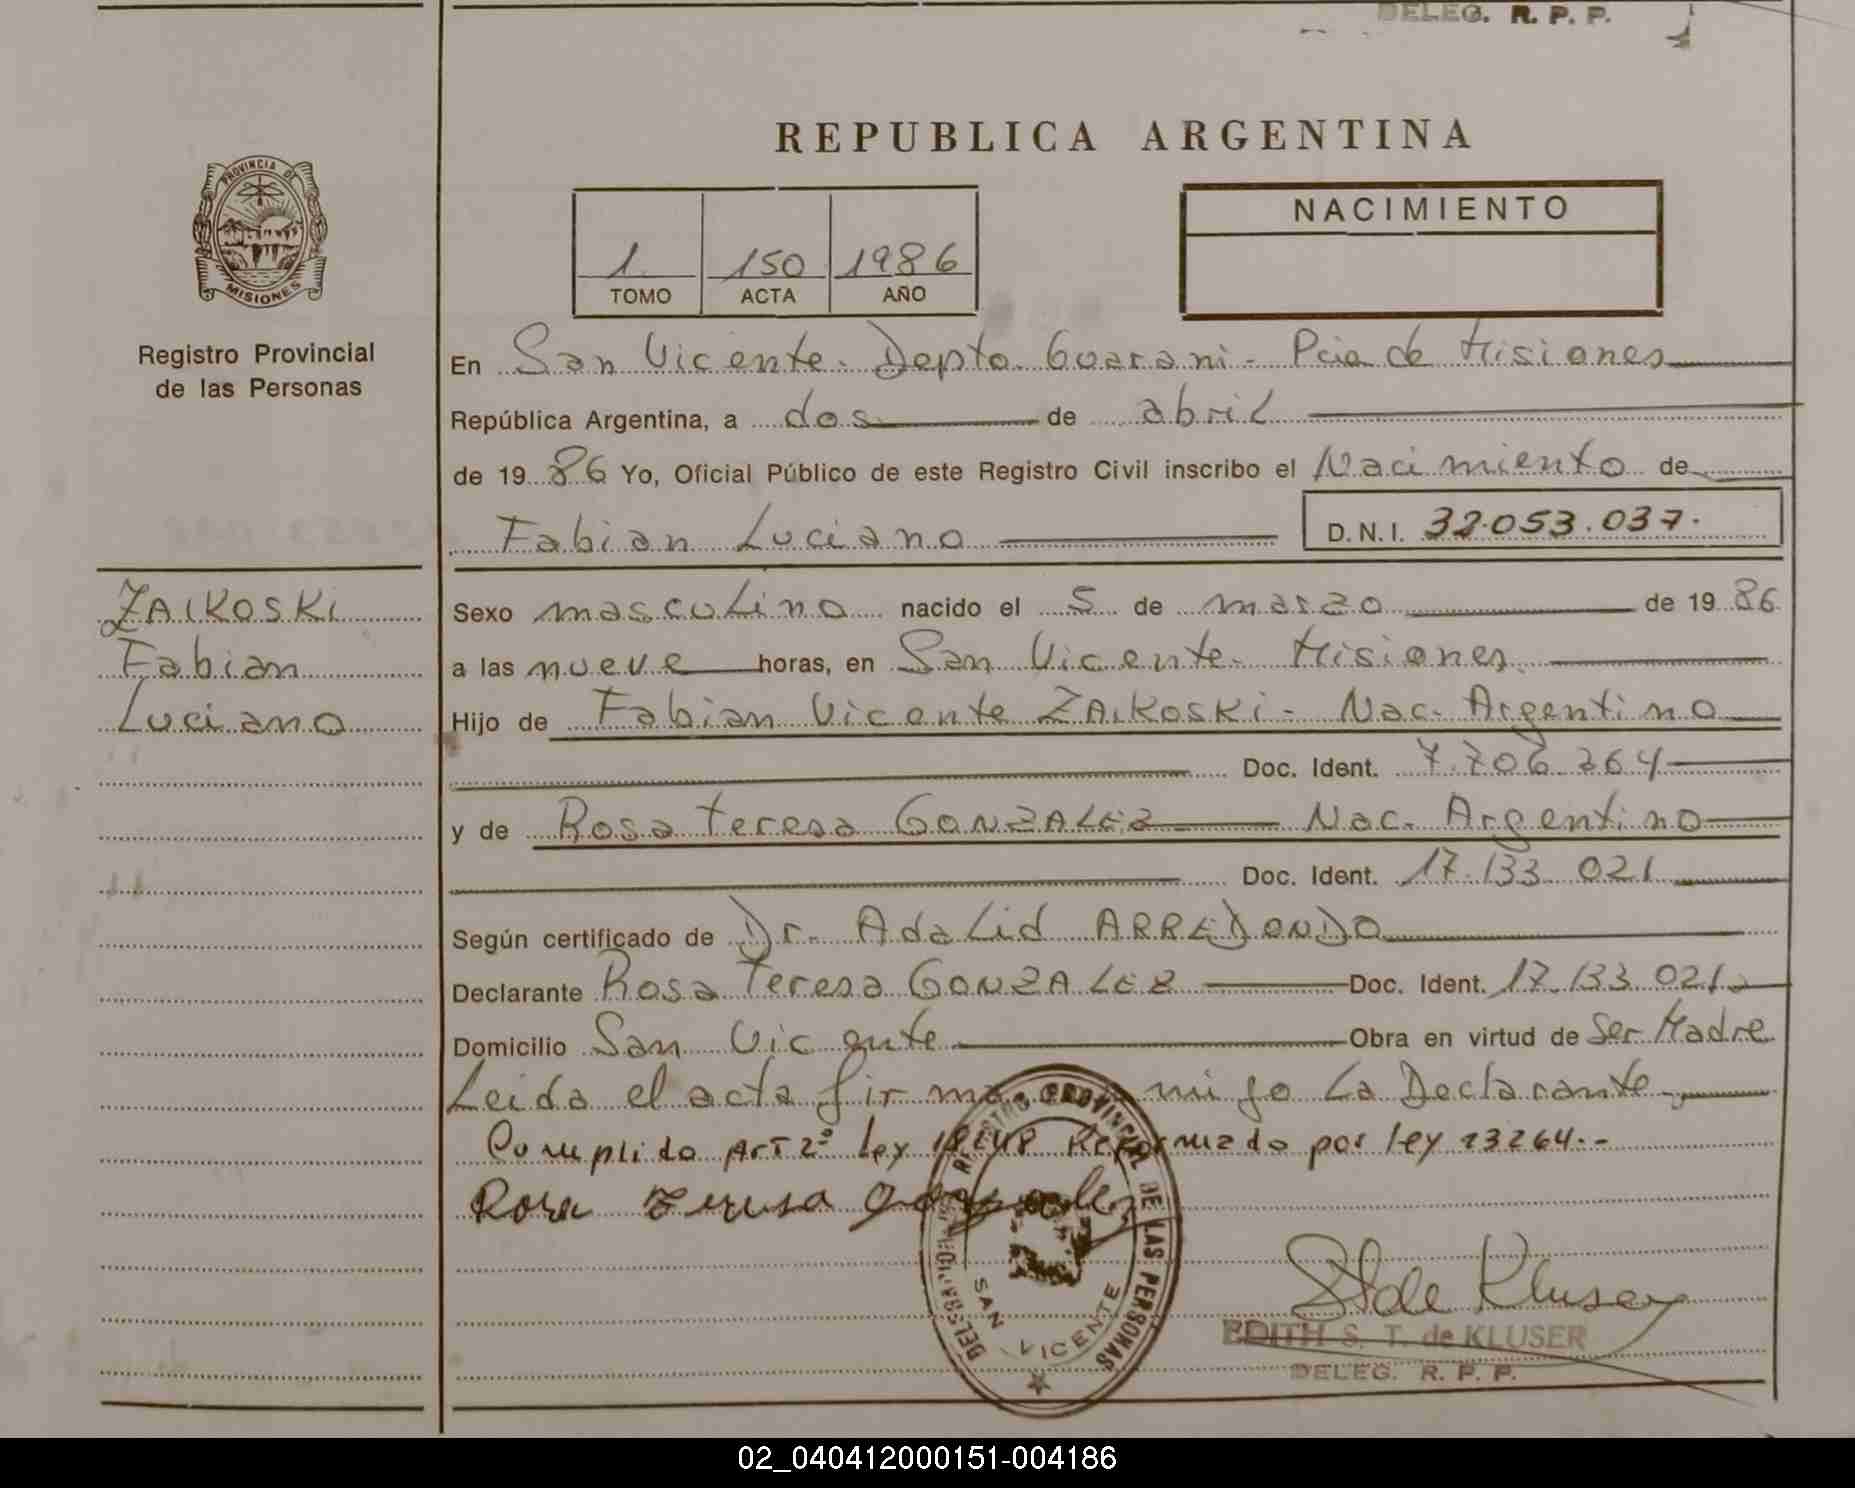 DELEG. R. P. P.
REPUBLICA ARGENTINA
PROVINCIA DE
MISIONES
Registro Provincial
de las Personas
1. 150 1986
TOMO ACTA AÑO
NACIMIENTO
En San Vicente. Depto Guarani - Pcia de Misiones
República Argentina, a dos de abril
de 19 86 Yo, Oficial Público de este Registro Civil inscribo el Nacimiento de
Fabian Luciano D.N.I. 32.053.037.
ZAIKOSKI
Fabian
Luciano
Sexo masculino nacido el 5 de marzo de 19 86
a las nueve horas, en San Vicente - Misiones
Hijo de Fabian Vicente ZAIKOSKI - Nac. Argentino
Doc. Ident. 7.706.264
y de Rosa Teresa GONZALEZ Nac. Argentino
Doc. Ident. 17.133.021
Según certificado de Dr. Adalid ARREDONDO
Declarante Rosa Teresa GONZALEZ Doc. Ident. 17.133.021
Domicilio San Vicente Obra en virtud de Ser Madre
Leida el acta firma migo La Declarante
Cumplido Art 2º Ley Reformado por ley 23264.-
Rosa Teresa Gonzalez
REGISTRO PROVINCIAL DE LAS PERSONAS
SAN VICENTE
S T de Kluser
EDITH S. T. de KLUSER
DELEG. R. P. P.
02_040412000151-004186